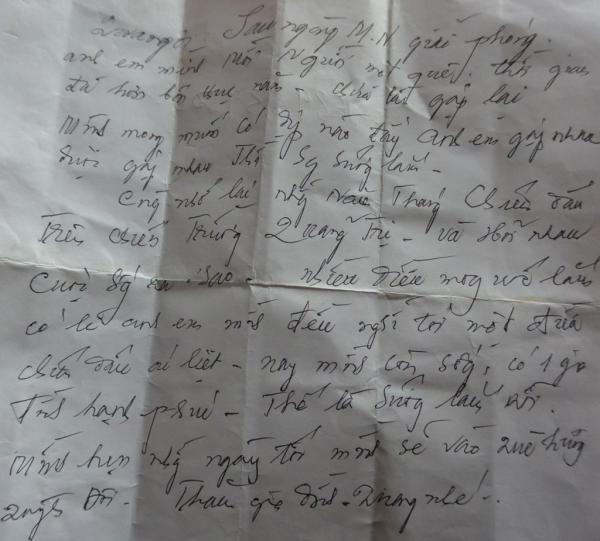 Quang ơi. Sau ngày M.N giải phóng.
anh em mình mỗi người một quê. thời gian
đã hơn bốn chục năm - chưa lần gặp lại
Mình mong muốn có dịp nào đấy anh em gặp nhau
được gặp nhau Thì sg sướng lắm -
Cùng nhớ lại những năm Tháng Chiến đấu
trên chiến trường Quảng Trị - và hỏi nhau
Cuộc sống ra sao - nhiều điều mong ước lắm
có lẽ anh em mình đều nghĩ tới một thời
chiến đấu ác liệt - nay mình còn sống, có 1 gia
đình hạnh phúc - Thế là sướng lắm rồi.
Mình hẹn những ngày tới mình sẽ vào quê hương
Thăm gia đình - Quang nhé -.